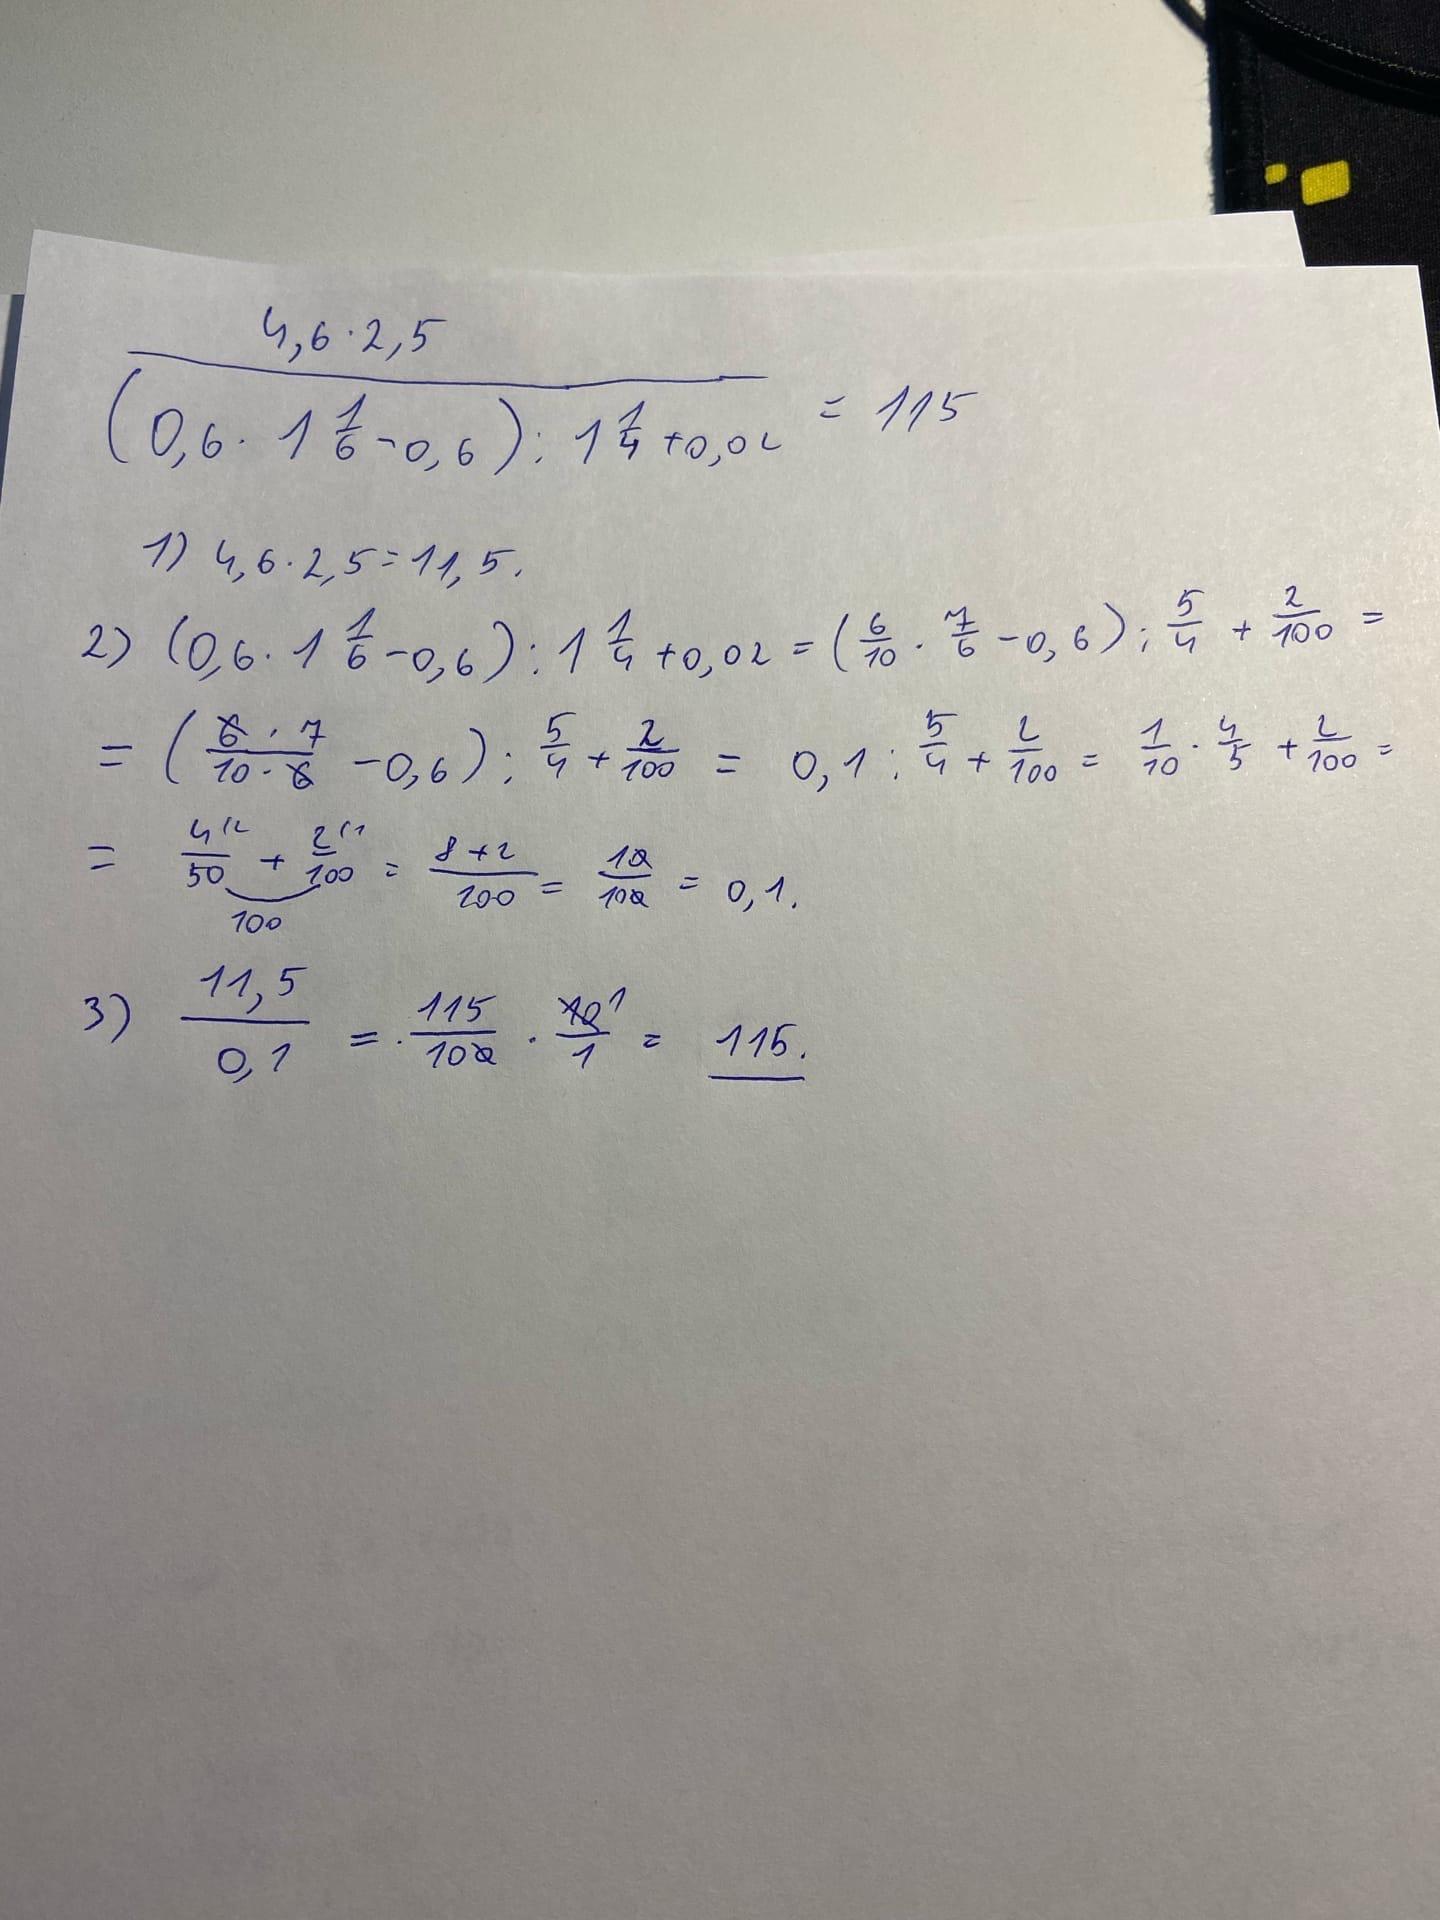 4,6·2,5
(0,6·1 1/6-0,6):1 1/4+0,02 = 115
1) 4,6·2,5=11,5.
2) (0,6·1 1/6-0,6):1 1/4+0,02=(6/10·7/6-0,6):5/4+2/100=
=(6·7/10·6-0,6):5/4+2/100=0,1:5/4+2/100=1/10·4/5+2/100=
=4/50+2/100=8+2/100=10/100=0,1.
100
3) 11,5/0,1=·115/100·10/1=115.